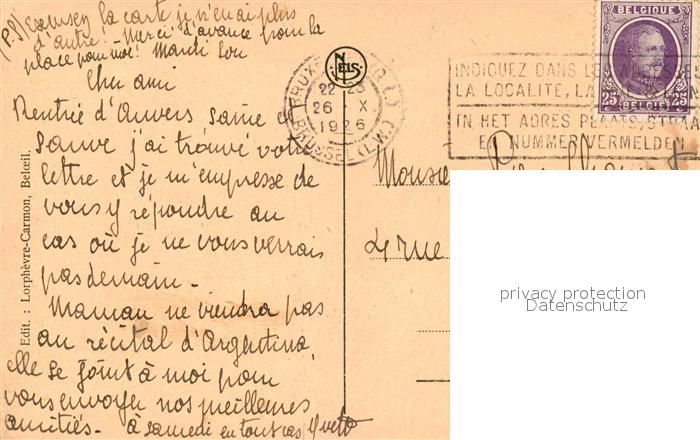 (P.S) Excusez la carte je n'en ai plus
d'autre! Merci d'avance pour la
place pour moi! Mardi
Cher ami
Rentrée d'Anvers saine et
sauve j'ai trouvé votre
lettre et je m'empresse de
vous y répondre au
cas où je ne vous verrais
pas demain.
Maman ne viendra pas
au récital d'Argentina,
elle se joint à moi pour
vous envoyer nos meilleures
amitiés. à samedi en tout cas
Edit. : Lorphèvre-Carmon, Belœil.
NELS
BRUXEL
22-23
26 X
1926
BRUSSEL (L.W.)
BELGIQUE
25 25
BELGIE
INDIQUEZ DANS LES
LA LOCALITE, LA
IN HET ADRES PLAATS, STRAA
EN NUMMER VERMELDEN
Monsie
4 rue
privacy protection
Datenschutz